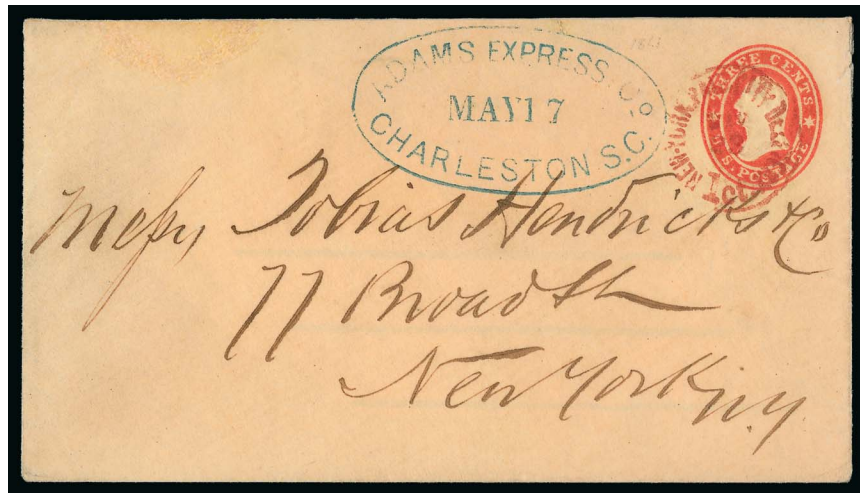 1861
ADAMS EXPRESS Co.
MAY 17
CHARLESTON S.C.
THREE CENTS
U.S. POSTAGE
NEW-YORK
1 ct
Messrs Tobias Hendricks & Co
77 Broad St
New York N.Y.